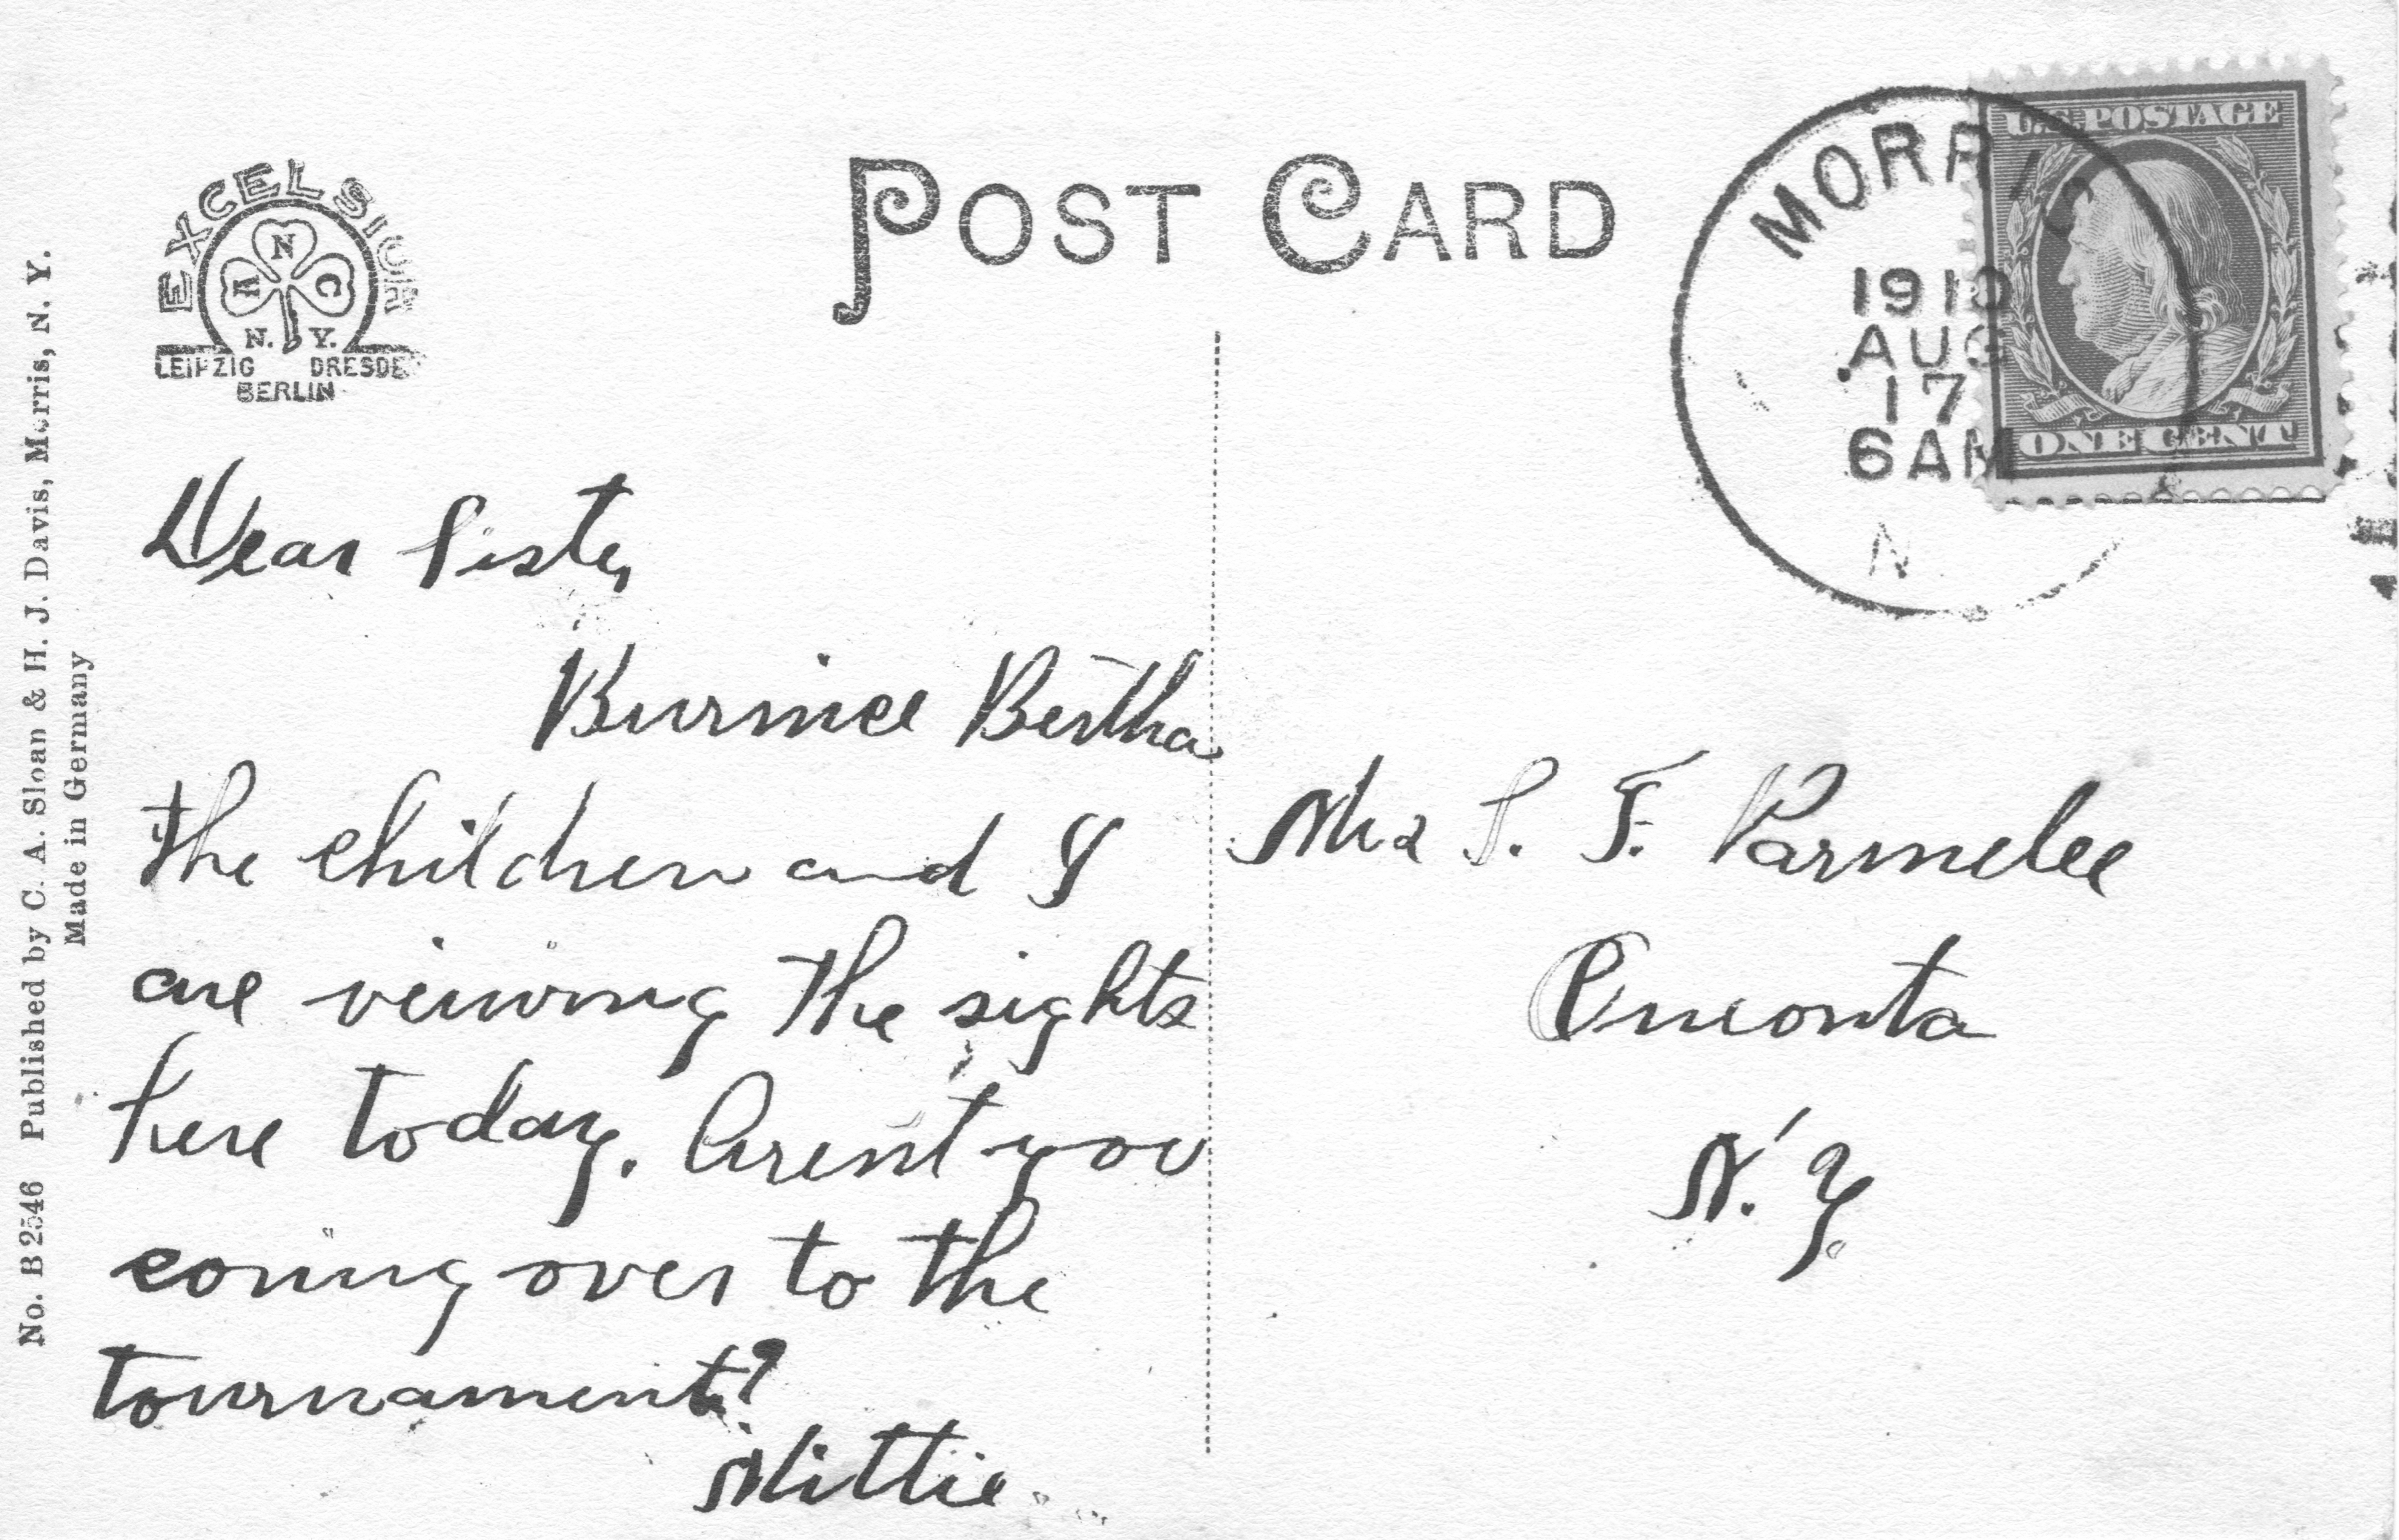 POST CARD
EXCELSIOR
A N C
N. Y.
LEIPZIG DRESDE
BERLIN
MORRIS
1910
AUG
17
6AM
N.
U.S. POSTAGE
ONE CENT
No. B 2546 Published by C. A. Sloan & H. J. Davis, Morris, N. Y.
Made in Germany
Dear Sister,
Burnice Bertha
the children and I
are viewing the sights
here today. Arent you
coming over to the
tournament?
Mittie
Mrs S. F. Parmelee
Oneonta
N. Y.